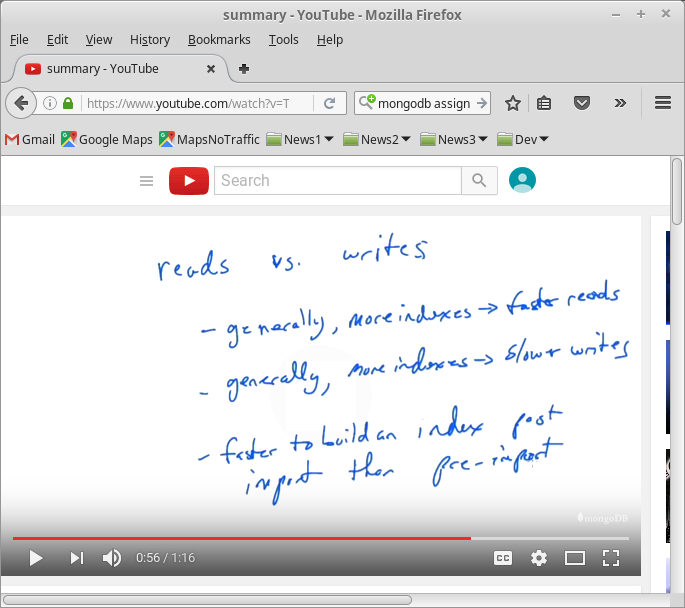 summary - YouTube - Mozilla Firefox
File Edit View History Bookmarks Tools Help
summary - YouTube
https://www.youtube.com/watch?v=T
mongodb assign
Gmail Google Maps MapsNoTraffic News1 News2 News3 Dev
Search
reads vs. writes
- generally, more indexes → faster reads
- generally, more indexes → slower writes
- faster to build an index post
import than pre-import
mongoDB
0:56 / 1:16
CC